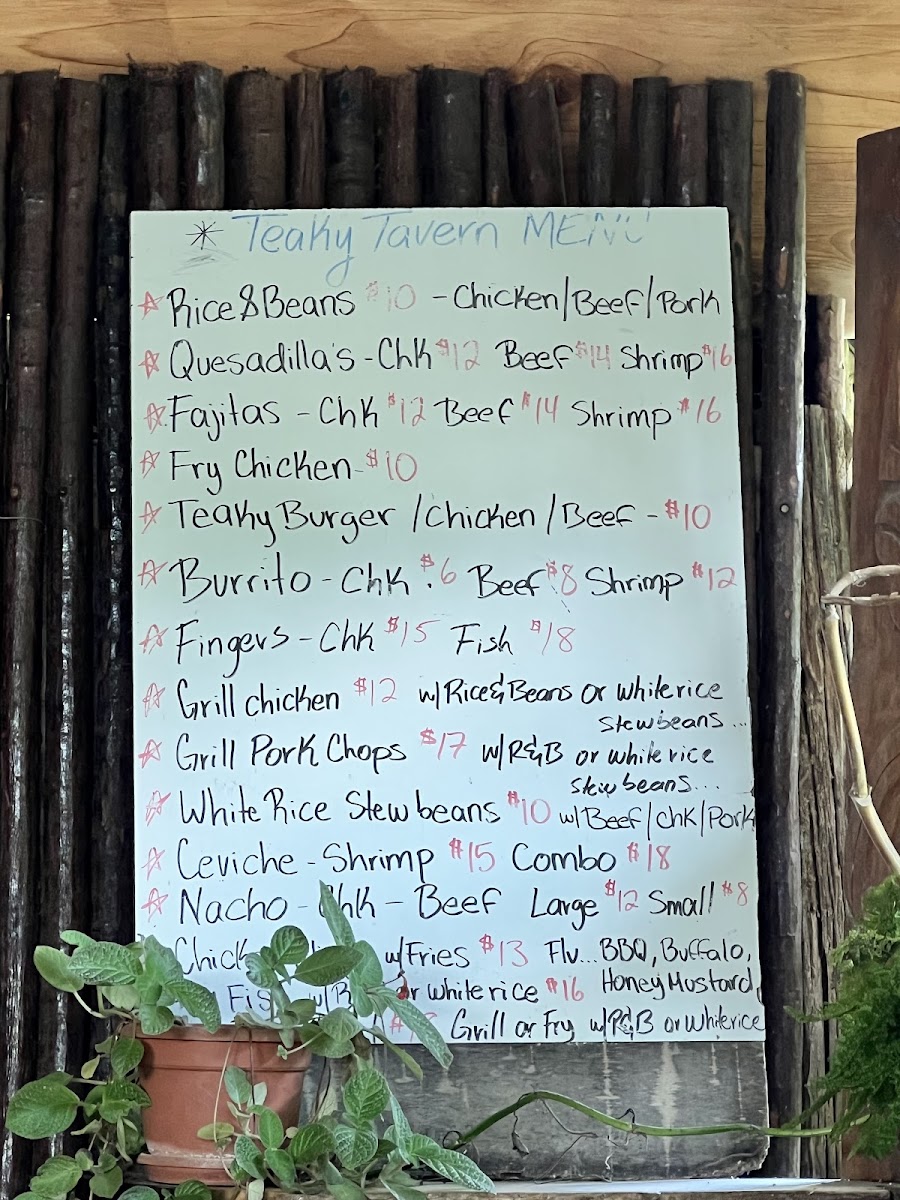 Teaky Tavern MENU
Rice & Beans $10 - Chicken/Beef/Pork
Quesadilla's - Chk $12 Beef $14 Shrimp $16
Fajitas - Chk $12 Beef $14 Shrimp $16
Fry Chicken - $10
Teaky Burger /Chicken /Beef - $10
Burrito - Chk $6 Beef $8 Shrimp $12
Fingers - Chk $15 Fish $18
Grill chicken $12 w/Rice & Beans or white rice
stew beans...
Grill Pork Chops $17 w/R&B or white rice
stew beans...
White Rice Stew beans $10 w/Beef/Chk/Pork
Ceviche - Shrimp $15 Combo $18
Nacho - Chk - Beef Large $12 Small $8
w/Fries $13 Flv... BBQ, Buffalo,
Honey Mustard,
or white rice $16
Grill or Fry w/R&B or white rice